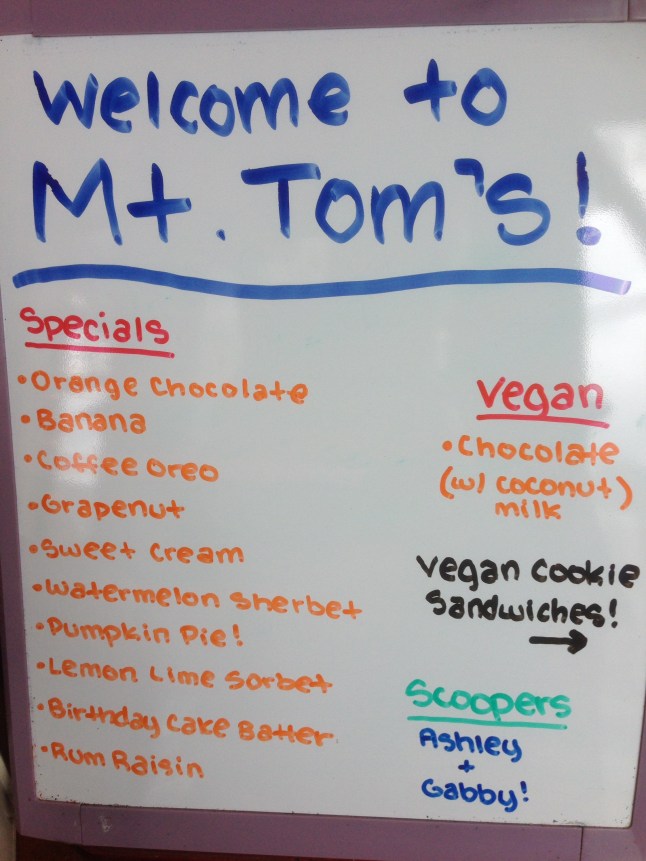 Welcome to
Mt. Tom's!
Specials
•Orange Chocolate
•Banana
•Coffee Oreo
•Grapenut
•Sweet Cream
•Watermelon Sherbet
•Pumpkin Pie!
•Lemon Lime Sorbet
•Birthday Cake Batter
•Rum Raisin
Vegan
•Chocolate
(w/ coconut)
milk
Vegan Cookie
Sandwiches!
→
Scoopers
Ashley
+
Gabby!